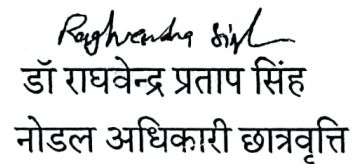 Raghvendra Singh
डॉ राघवेन्द्र प्रताप सिंह
नोडल अधिकारी छात्रवृत्ति